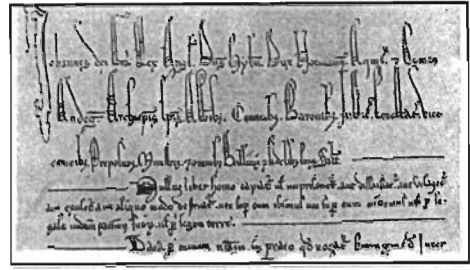 Johannes Dei Gra Rex Angl. Dns Hybn. Dux Normann. Aquit. & Comes
Andeg. Archiepis. Epis. Abbibz. Comitibz. Baronibz. Justic. vice
comitibz. Prepositis. Ministris. & omnibz Ballivis & fidelibz suis Saltm
Nullus liber homo capiatr ul imprisonetr. aut dissaisiatr. aut utlagetr.
aut exuletr. aut aliquo modo destruatr. nec sup eum ibimus nec sup eum mittemus nisi p le
gale judicium parium suorz. ul p legem terre.
Data p manum nram in prato qd vocatr inter